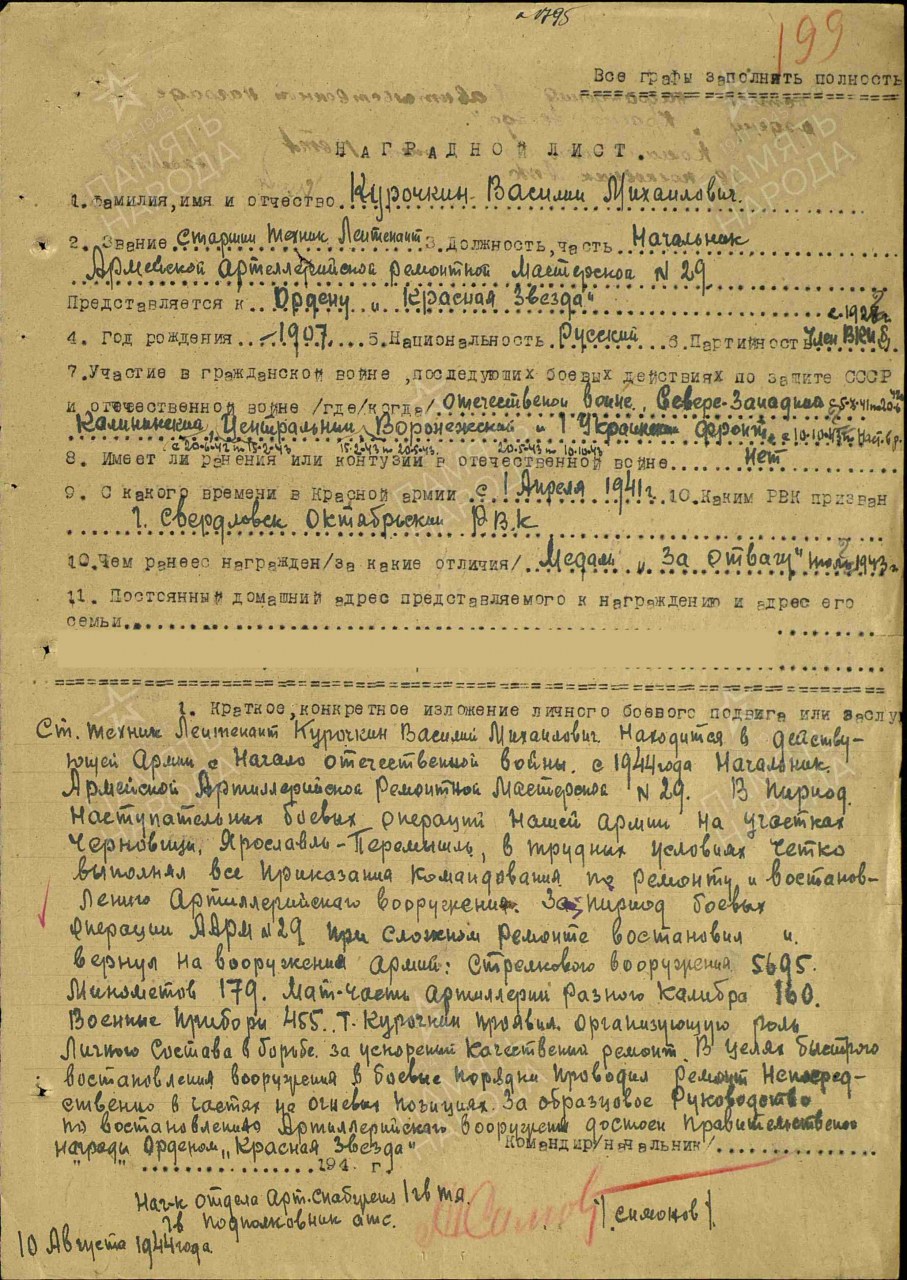 199
Все графы заполнять полность
НАГРАДНОЙ ЛИСТ.
1. Фамилия, имя и отчество Курочкин Василий Михаилович.
2. Звание старший техник Лейтенант 3. Должность, часть Начальник
Армейской Артеллерийской ремонтной Мастерской N 29
Представляется к Ордену „Красная Звезда"
4. Год рождения 1907 5. Национальность Русский 6. Партийность Член ВКП(б) с 1928г.
7. Участие в гражданской войне, последующих боевых действиях по защите СССР
и отечественной войне /где/когда/ Отечественой войне, Северо-Западный с 5-X-41 по
Калининский, Центральный Воронежской и 1 Украинский фронт с 10-10-43 по Наст. вр.
с 20-6-43 по 15-2-43 15-2-43 по 20-5-43. 20-5-43 по 10-10-43
8. Имеет ли ранения или контузии в отечественной войне Нет
9. С какого времени в Красной армии с 1 Апреля 1941г. 10. Каким РВК призван
г. Свердловск Октябрьский РВК
10. Чем ранеес награжден/за какие отличия/ Медаль „За отвагу" 1943г
11. Постоянный домашний адрес представляемого к награждению и адрес его
семьи
1. Краткое, конкретное изложение личного боевого подвига или заслу
Ст. техник Лейтенант Курочкин Василий Михаилович Находится в действу-
ющей Армии с Начало отечественной войны. с 1944 года Начальник.
Армейской Артиллерийской Ремонтной Мастерской N 29. В Период
Наступательных боевых операций нашей армии на участках
Черновицы, Ярославль-Перемышль, в трудных условиях четко
выполнял все Приказания командования по ремонту и востанов-
лению Артиллерийского вооружения. За период боевых
операции ААРМ N 29 при сложном ремонте востановил и.
вернул на вооружения армии: стрелкового вооружения 5695.
Минометов 179. Мат-часть артиллерий разного калибра 160.
Военные приборы 455. Т. Курочкин проявил организующую роль
Личного Состава в борьбе за ускорений качественый ремонт. В целях быстрого
востановления вооружения в боевые порядки проводил ремонт Непосред-
ственно в частях на огневых позициях. За образцовое Руководство
по востановлению Артиллерийского вооружения достоен Правительственой
награды Орденом „Красная Звезда"
Командир/начальник/
194 г.
Нач-к отдела Арт. снабжения 1 гв ТА
Гв Подполковник атс. /Симонов/.
10 Августа 1944 года